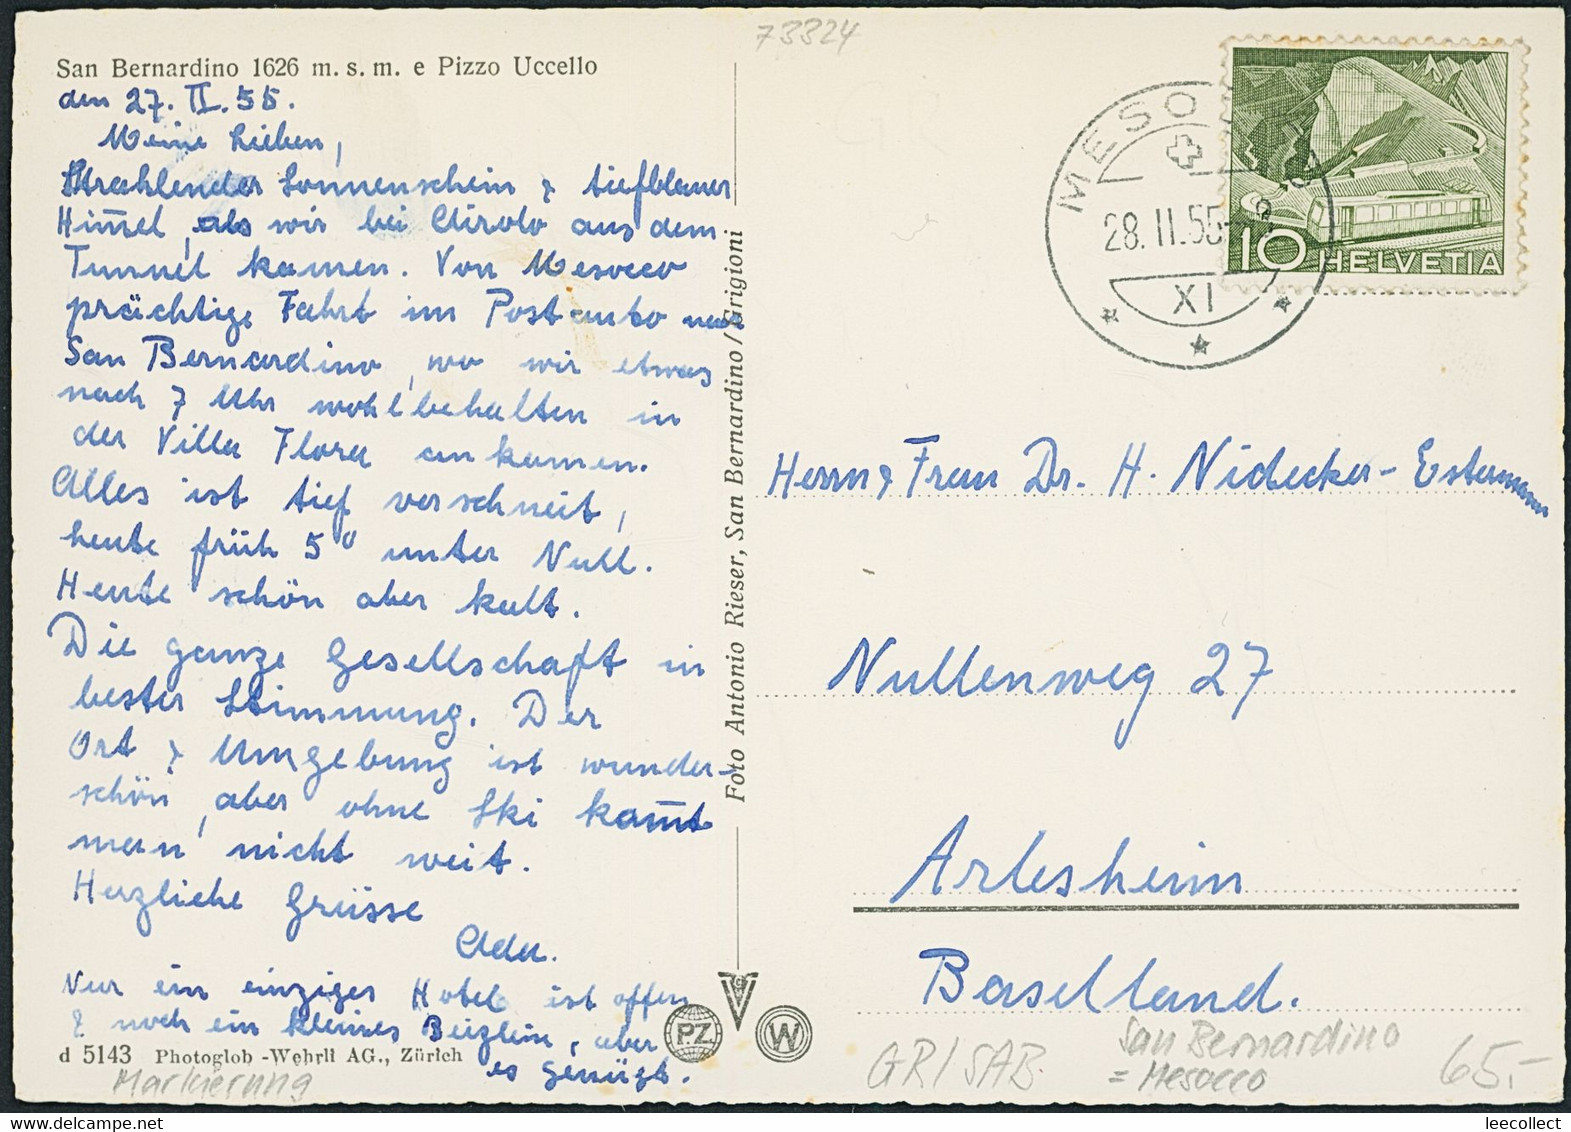 73324
San Bernardino 1626 m. s. m. e Pizzo Uccello
den 27. II. 55.
Meine Lieben,
Strahlender Sonnenschein & tiefblauer
Him̅el, als wir bei Airolo aus dem
Tunnel kamen. Von Mesocco
prächtige Fahrt im Postauto nach
San Bernardino, wo wir etwas
nach 7 Uhr wohlbehalten in
der Villa Flora ankamen.
Alles ist tief verschneit,
heute früh 5° unter Null.
Heute schön aber kalt.
Die ganze Gesellschaft in
bester Stimmung. Der
Ort & Umgebung ist wunder-
schön, aber ohne Ski kom̅t
man nicht weit.
Herzliche Grüsse
Ada.
Nur ein einziges Hotel ist offen
& noch ein kleines Beizlein, aber
es genügt.
d 5143 Photoglob-Wehrli AG., Zürich
Markierung
Foto Antonio Rieser, San Bernardino / Grigioni
PZ
W
MESO
28. II. 55-8
XI
10 HELVETIA
Herrn & Frau Dr. H. Nidecker-Estermann
Nullenweg 27
Arlesheim
Baselland.
GR / SAB.
San Bernardino
= Mesocco
65.-
leecollect